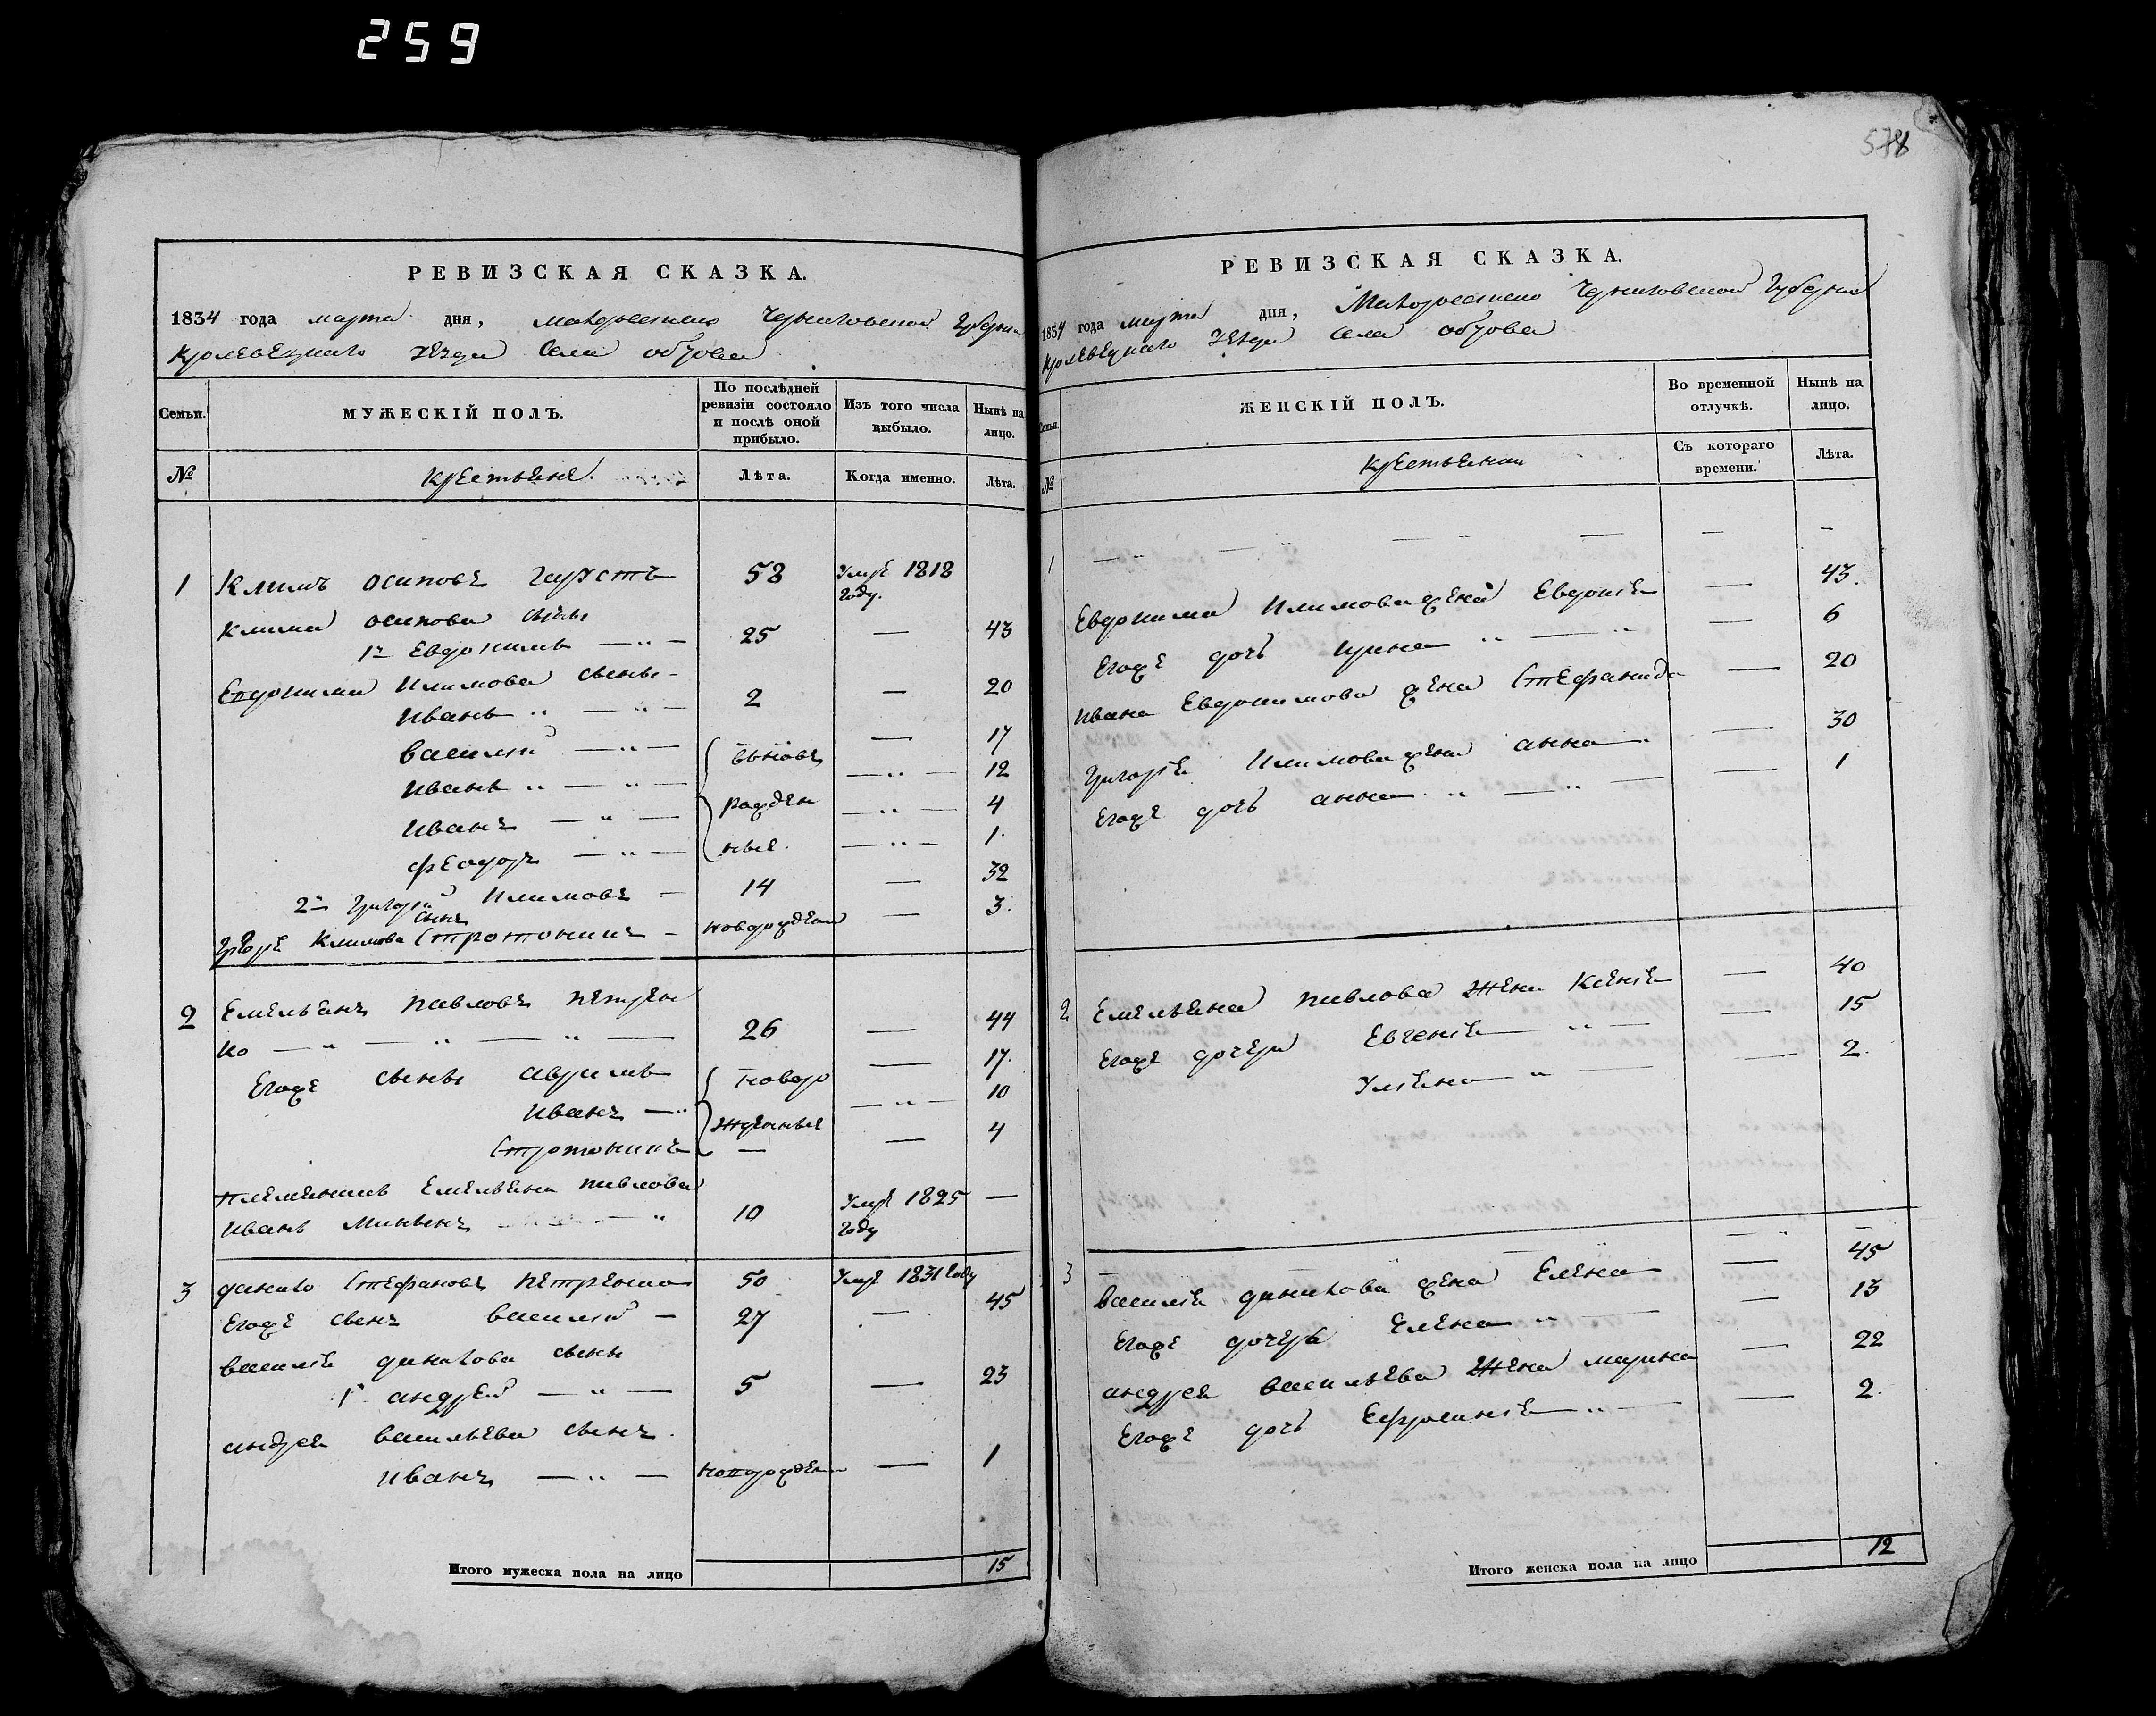 259
578
РЕВИЗСКАЯ СКАЗКА.
1834 года марта дня, Малороссiйско Черниговской Губернiи
Кролевецкаго уезда Села обтова
Семьи.
МУЖЕСКІЙ ПОЛЪ.
По послѣдней ревизіи состояло и послѣ оной прибыло.
Изъ того числа выбыло.
Нынѣ на лицо.
№
крестьяне.
Лѣта.
Когда именно.
Лѣта.
1 Климъ осиповъ 58 Умре 1818 году.
Клима осипова сыны
1й Евдокимъ — " — 25 — 43
Евдокима Климова сыны -
Иванъ " — " — 2 — 20
василiй — " — — 17
Иванъ " — " — вновъ — " — 12
Иванъ — " — рожден — " — 4
феодоръ — " — ные. — " — 1.
2й Григорiй Климовъ — 14 — 32
Григорiя Климова сынъ Стратоникъ — новорожденый — 3.
2 Емельянъ павловъ петрен
ко — " — " — " — 26 — 44
Егоже сыны аврамъ новоро — 17.
Иванъ — " жденные — " — 10
Стратоникъ — — 4
племянникъ Емельяна павлова
Иванъ Мининъ — " 10 Умре 1825 году —
3 данило Стефановъ петренко 50 Умре 1831 году
Егоже сынъ василiй — 27 — 45
василiя данилова сыны
1й андрей — " — 5 — 23
андрея васильева сынъ.
Иванъ — " — новорожден — 1
Итого мужеска пола на лицо 15
РЕВИЗСКАЯ СКАЗКА.
1834 года марта дня, Малороссiйско Черниговской Губернiи
Кролевецкаго уезда Села обтова
Семьи.
ЖЕНСКІЙ ПОЛЪ.
Во временной отлучкѣ.
Нынѣ на лицо.
№
крестьянки
Съ котораго времени.
Лѣта.
1 — " — " — " — — -
Евдокима Климова жена Евдокiя — 43.
Егоже дочь ирина " — " — 6
Ивана Евдокимова жена Стефанида — 20
Григорiя Климова жена анна — 30
Егоже дочь анна " — " — — 1
2 Емельяна павлова жена Ксенiя — 40
Егоже дочери Евгенiя — " — — 15
Улiяна — " — — 2.
3 — — — — " —
василiя данилова жена Елена — 45
Егоже дочерь Елена — " — — 13
андрея васильева жена марина — 22
Егоже дочь Ефросинiя — " — — 2.
Итого женска пола на лицо 12